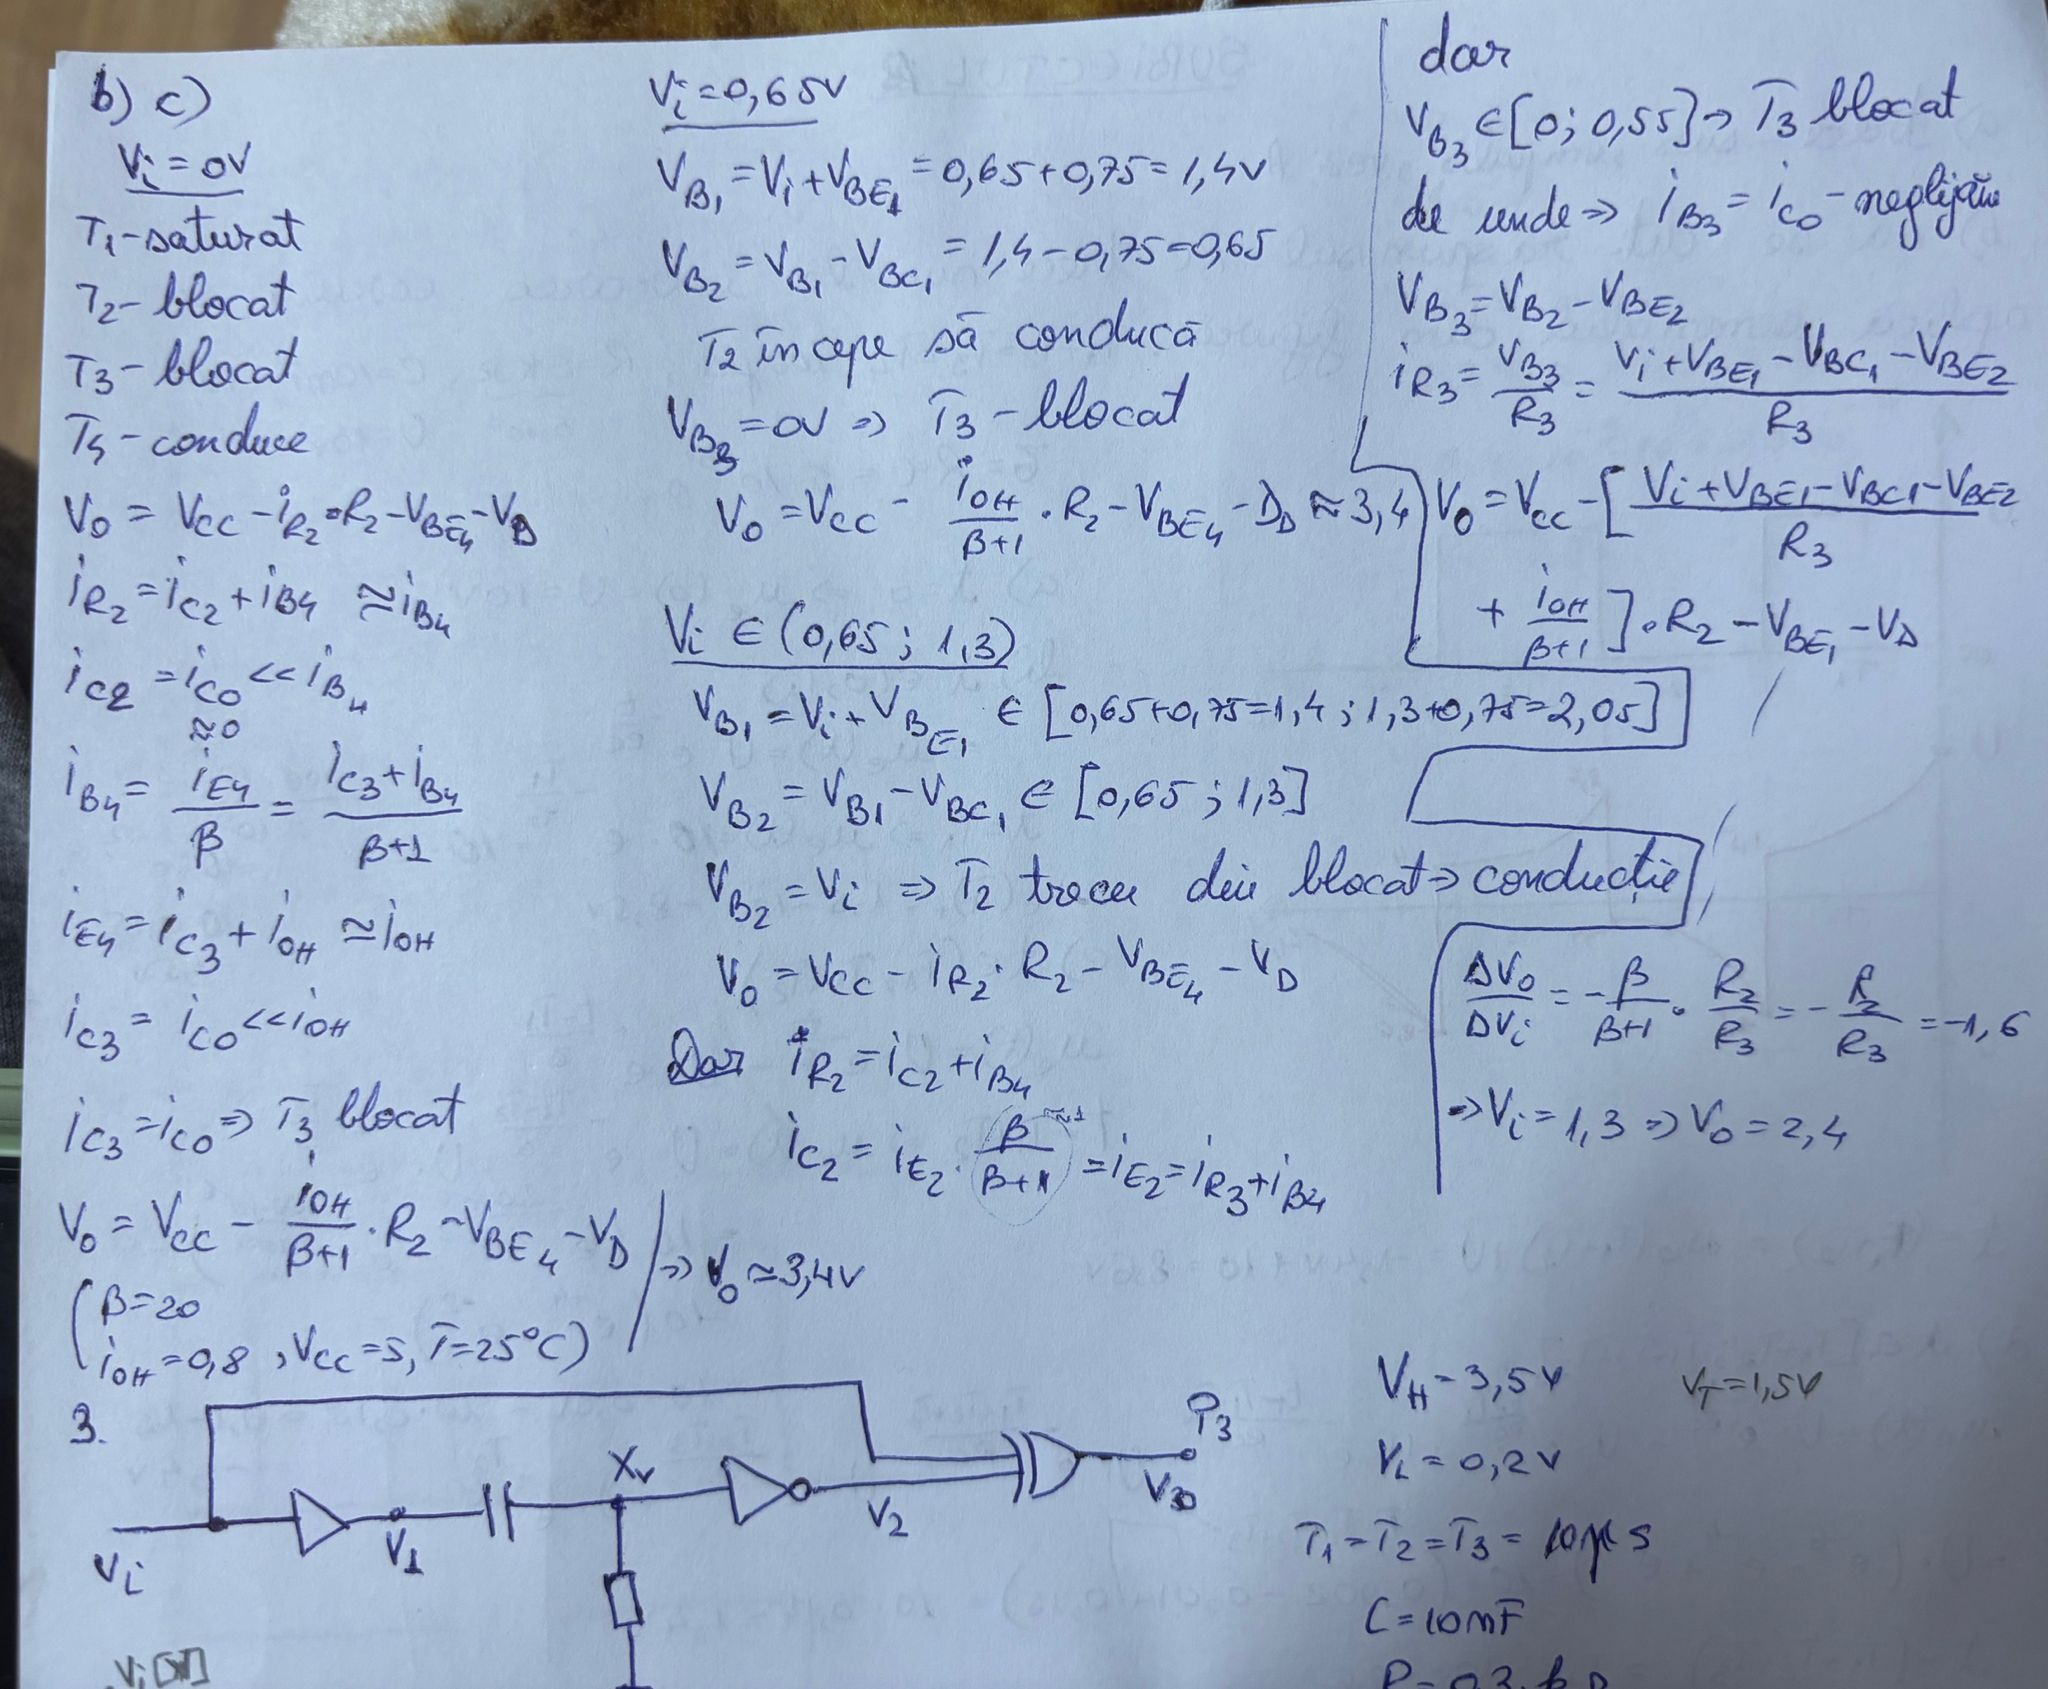 b) c)
Vi = 0V
T1 - saturat
T2 - blocat
T3 - blocat
T4 - conduce
V0 = VCC - iR2 · R2 - VBE4 - VD
iR2 = iC2 + iB4 ≈ iB4
iC2 = iC0 << iB4
≈0
iB4 = iE4/β = (iC3 + iB4)/(β+1)
iE4 = iC3 + iOH ≈ iOH
iC3 = iC0 << iOH
iC3 = iC0 ⇒ T3 blocat
V0 = VCC - iOH/(β+1) · R2 - VBE4 - VD ⇒ V0 ≈ 3,4V
(β = 20
iOH = 0,8 , VCC = 5, T = 25°C)
Vi = 0,65V
VB1 = Vi + VBE1 = 0,65 + 0,75 = 1,4V
VB2 = VB1 - VBC1 = 1,4 - 0,75 = 0,65
T2 începe să conducă
VB3 = 0V ⇒ T3 - blocat
V0 = VCC - iOH/(β+1) · R2 - VBE4 - DD ≈ 3,4
Vi ∈ (0,65 ; 1,3)
VB1 = Vi + VBE1 ∈ [0,65+0,75=1,4 ; 1,3+0,75=2,05]
VB2 = VB1 - VBC1 ∈ [0,65 ; 1,3]
VB2 = Vi ⇒ T2 trece din blocat → conducție
V0 = VCC - iR2 · R2 - VBE4 - VD
Dar iR2 = iC2 + iB4
iC2 = iE2 · β/(β+1) ≈1 = iE2 = iR3 + iB4
dar
VB3 ∈ [0 ; 0,55] → T3 blocat
de unde ⇒ iB3 = iC0 - neglijăm
VB3 = VB2 - VBE2
iR3 = VB3/R3 = (Vi + VBE1 - VBC1 - VBE2)/R3
V0 = VCC - [(Vi + VBE1 - VBC1 - VBE2)/R3
+ iOH/(β+1)] · R2 - VBE1 - VD
ΔV0/ΔVi = - β/(β+1) · R2/R3 = - R2/R3 = -1,6
⇒ Vi = 1,3 ⇒ V0 = 2,4
3.
Vi
V1
Xv
V2
T3
V30
VH = 3,5V
VT = 1,5V
VL = 0,2V
T1 = T2 = T3 = 10μs
C = 10nF
Vi [V]